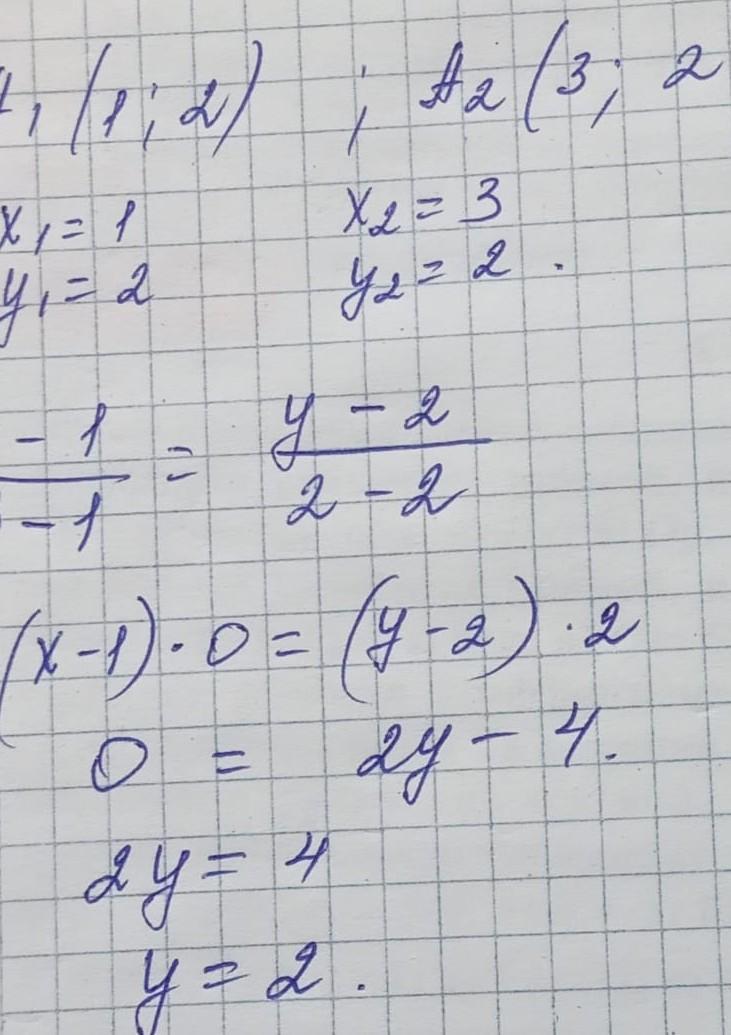 ₁ (1; 2) ; A₂ (3; 2
x₁ = 1 x₂ = 3
y₁ = 2 y₂ = 2 .
- 1 / - 1 = y - 2 / 2 - 2
(x - 1) · 0 = (y - 2) · 2
0 = 2y - 4.
2y = 4
y = 2 .